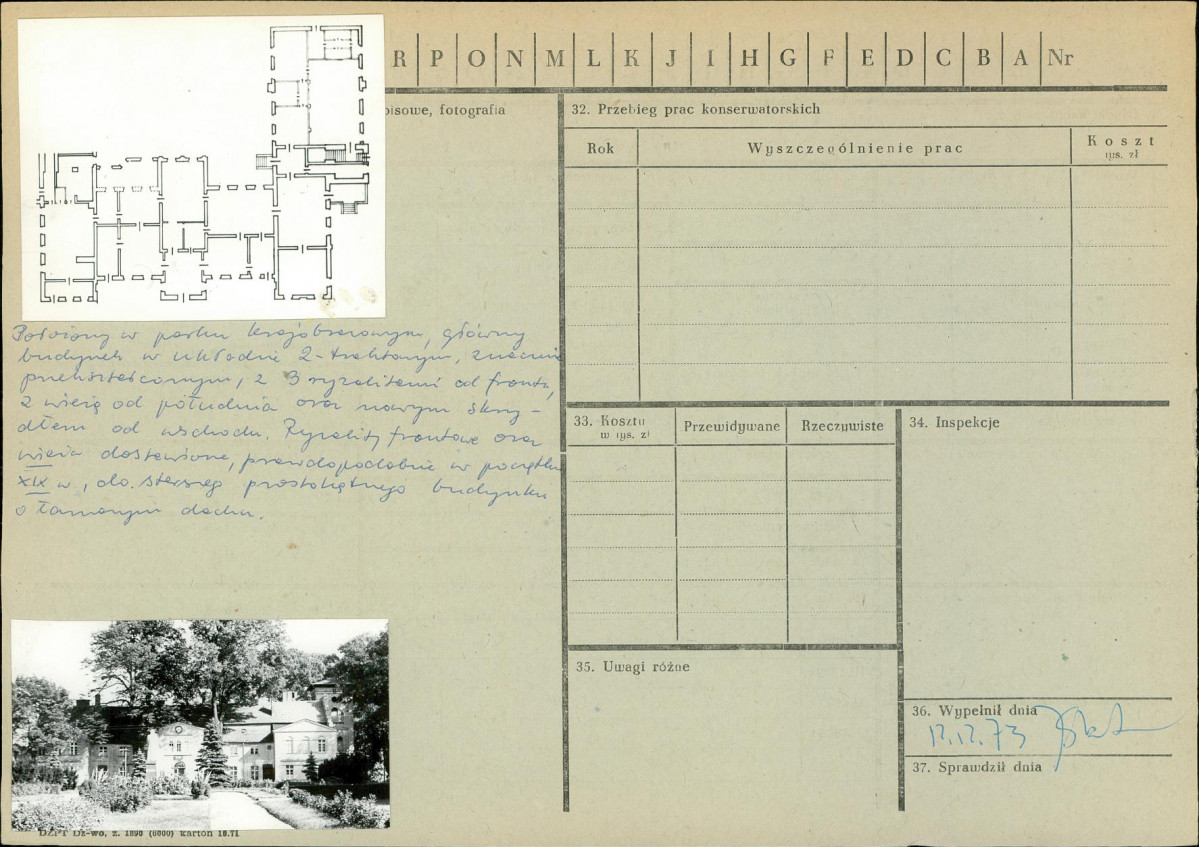 R P O N M L K J I H G F E D C B A Nr
pisowe, fotografia
32. Przebieg prac konserwatorskich
Rok
Wyszczególnienie prac
Koszt
tys. zł
Położony w parku krajobrazowym, główny
budynek w układzie 2-traktowym, znacznie
przekształconym, z 3 ryzalitami od frontu,
z wieżą od południa oraz nowym skrzy-
dłem od wschodu. Ryzality frontowe oraz
wieża dostawione, prawdopodobnie w początku
XIX w, do starszego prostokątnego budynku
o łamanym dachu.
33. Kosztu
w tys. zł
Przewidywane
Rzeczywiste
34. Inspekcje
35. Uwagi różne
36. Wypełnił dnia
12.12.73
37. Sprawdził dnia
DZPT Dz-wo, z. 1890 (6000) karton 10.71